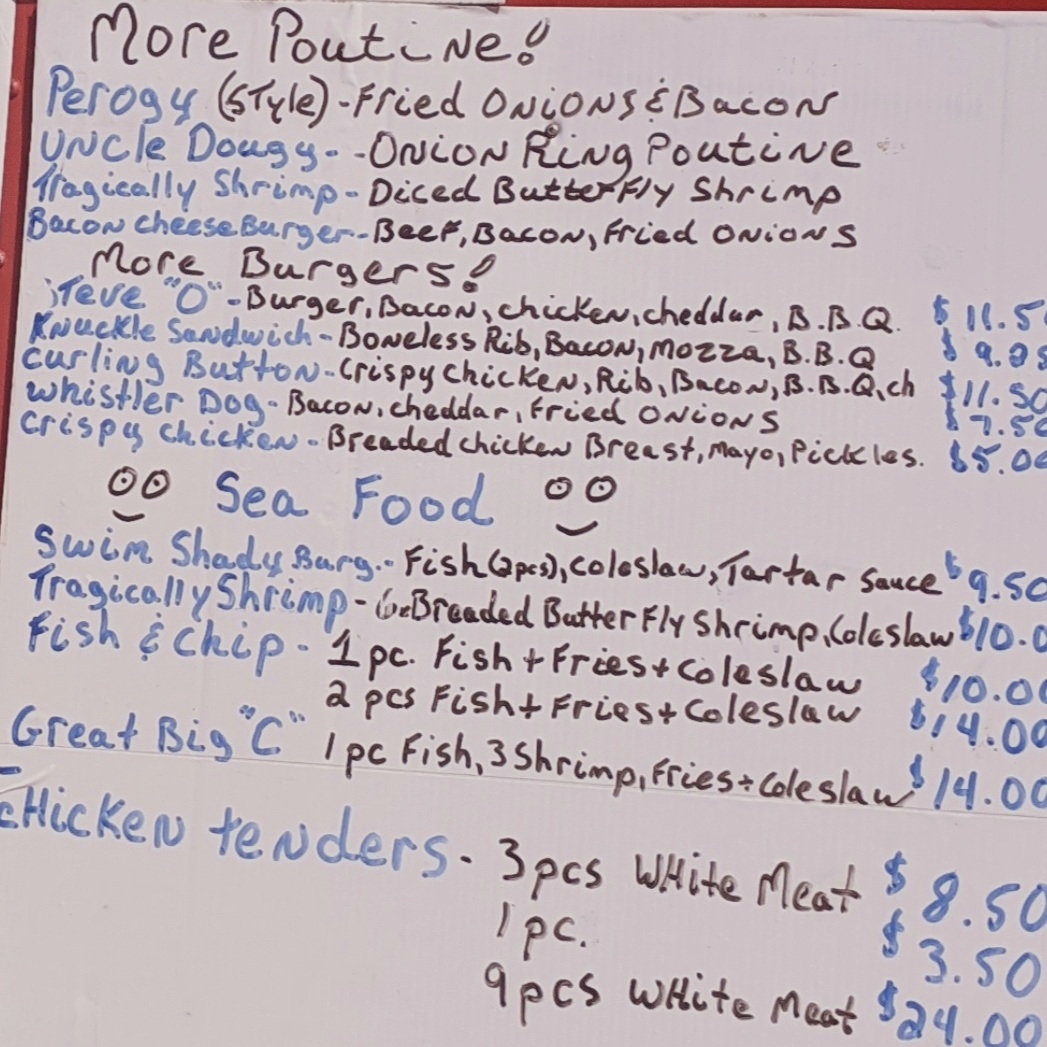 More Poutine!
Perogy (style) - Fried Onions & Bacon
Uncle Dougy - - Onion Ring Poutine
Tragically Shrimp - Diced Butterfly Shrimp
Bacon cheese Burger - Beef, Bacon, Fried Onions
More Burgers!
Steve "O" - Burger, Bacon, chicken, cheddar, B.B.Q. $11.5
Knuckle Sandwich - Boneless Rib, Bacon, Mozza, B.B.Q $9.
Curling Button - Crispy Chicken, Rib, Bacon, B.B.Q, ch $11.50
Whistler Dog - Bacon, cheddar, Fried Onions $7.50
Crispy Chicken - Breaded chicken Breast, Mayo, Pickles. $5.00
Sea Food
Swim Shady Burg. - Fish (2pcs), Coleslaw, Tartar Sauce $9.50
Tragically Shrimp - 6x Breaded Butterfly Shrimp, Coleslaw $10.0
Fish & Chip - 1 pc. Fish + Fries + Coleslaw $10.00
2 pcs Fish + Fries + Coleslaw $14.00
Great Big "C" 1 pc Fish, 3 Shrimp, Fries + Coleslaw $14.00
Chicken tenders - 3 pcs White Meat $8.50
1 pc. $3.50
9 pcs White Meat $24.00